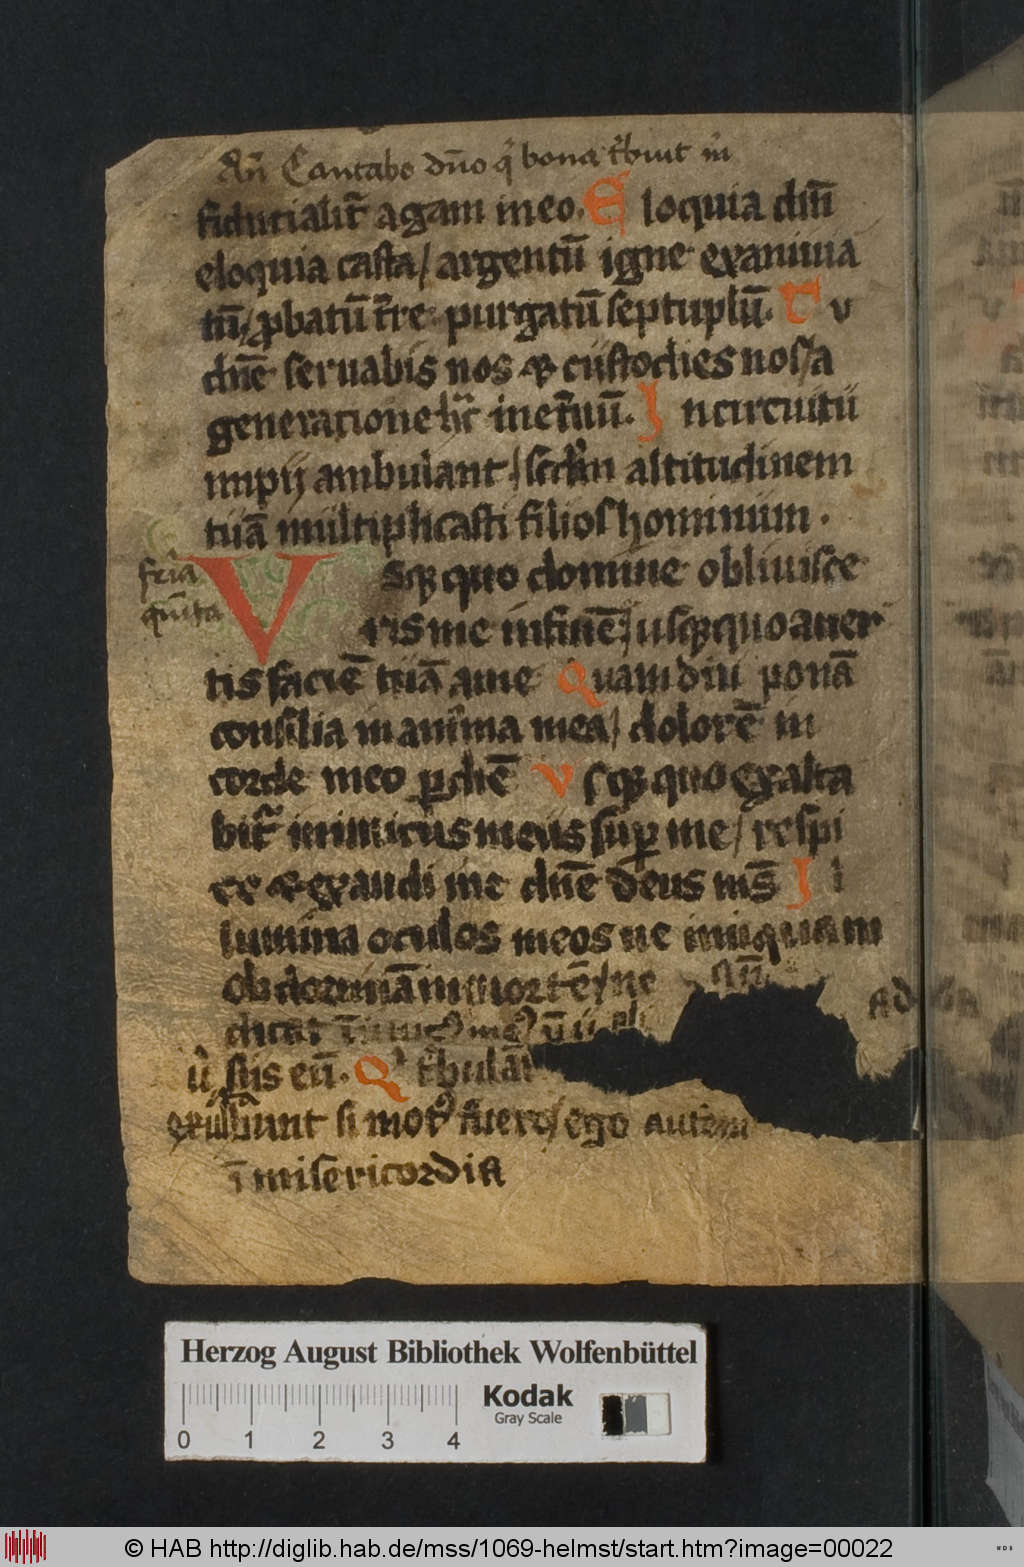 Añ Cantabo dño q̍ bona t̍buit m̍
fiducialit̃ agam in eo. Eloquia dñi
eloquia casta / argentũ igne examina
tũ / ꝓbatũ t̃re purgatũ septuplũ. Tu
dñe seruabis nos & custodies nos / a
generacione hc̃ inet̃nũ. In circuitu
impij ambulant / scd̃m altitudinem
tuã multiplicasti filios hominum.
feria
quinta
Vsqꝫ quo domine obliuisce
ris me infinẽ / usqꝫquo auer
tis faciẽ tuã ame Quamdiu ponã
consilia in anima mea / dolorẽ in
corde meo ꝑ diẽ Vsqꝫ quo exalta
bit̃ inimicus meus suꝑ me / respi
ce & exaudi me dñe deus mẽs Il
lumina oculos meos ne inuquam
obdormiã in mortẽ / ne Añ
dicat
ũsus eũ. Q̍ t̍bulãt
exultabunt si mot᷒ fuero / ego autem
ĩ misericordia
Herzog August Bibliothek Wolfenbüttel
0 1 2 3 4
Kodak
Gray Scale
© HAB http://diglib.hab.de/mss/1069-helmst/start.htm?image=00022